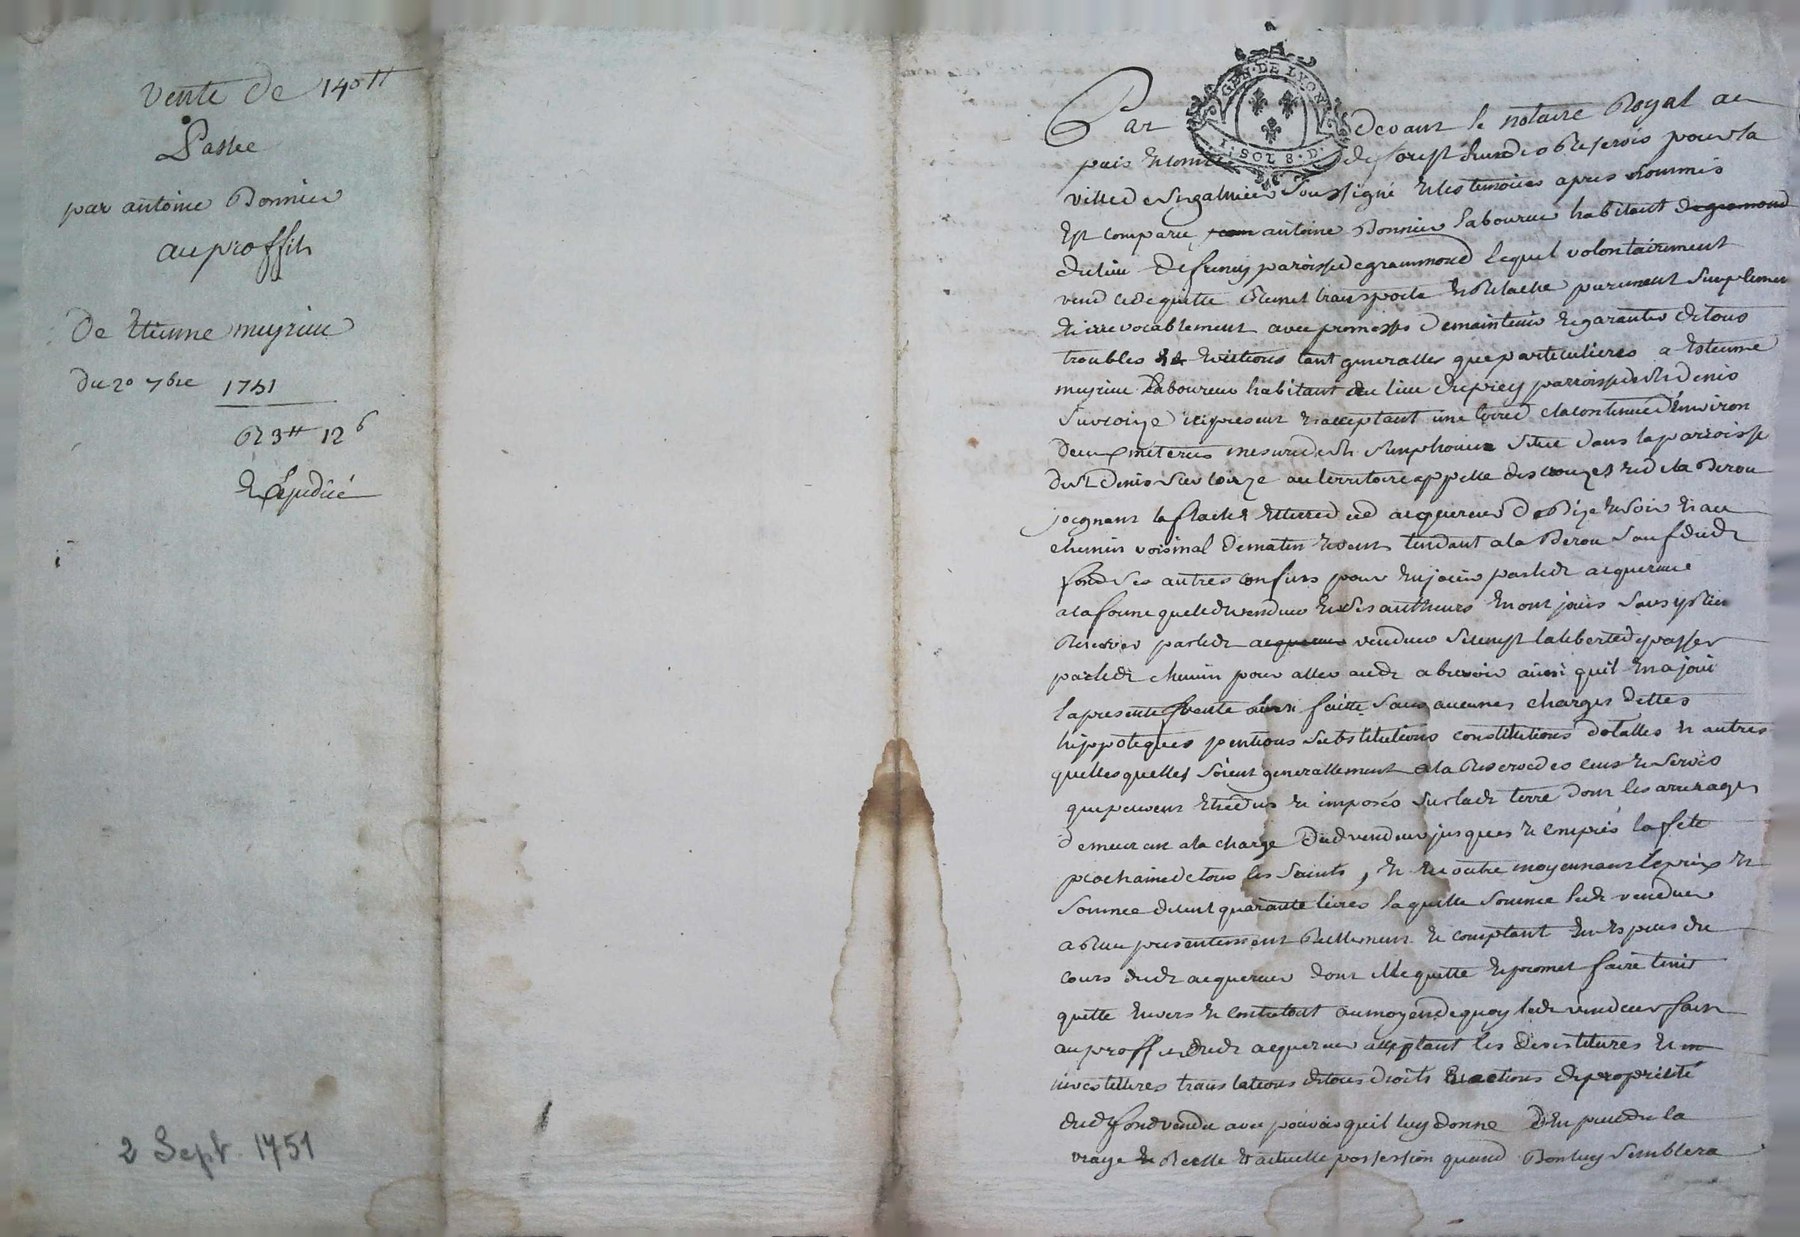 Vente de 140tt
Passée
par antoine Bonnier
au proffit
De Etienne meyrieu
Du 20 7bre 1751
R 3tt 12 6
Expédiée
2 Sept. 1751
GEN·DE LYON
1·SOL 8·D·
Par devant le notaire Royal au
païs et comté de forest reservé pour la
ville de St galmier soussigné et les temoins apres nommés
Est comparu antoine Bonnier laboureur habitant de gramond
du lieu de paroisse de grammond lequel volontairement
vend cede quitte Remet transporte et Relache purement simplement
et irrevocablement avec promesse de maintenir et garantir de tous
troubles et evictions tant generalles que particulieres a Estienne
meyrieu Laboureur habitant du lieu de parroisse de St denis
sur coize icy present et acceptant une terre de la contenue d'Environ
deux meterés mesure de St simphorien scitue dans la parroisse
de St Denis sur coize au territoire appellé des et de la Berou
joignant terre dud acquereur de Bize et soir et au
chemin voisinal de matin et vent tendant a la Berou sauf dudt
fond ses autres confins pour En jouir par ledt acquereur
a la forme que ledt vendeur et ses autheurs En ont jouis sans y rien
Reserver par ledt acquereur vendeur si ce n'est la liberté de passer
par ledt chemin pour aller audt abrevoir ainsi quil En a joui
la presente vente ainsi faitte sans aucunes charges dettes
hippoteques pentions substitutions constitutions dotalles et autres
quelles quelles soient generallement a la Reserve des cens et servis
que peuvent etre dus et imposés sur ladt terre dont les arrerages
demeurent a la charge dud vendeur jusques et compris la fete
prochaine de tous les saints, et En outre moyennant le prix et
somme de cent quarante livres laquelle somme ledt vendeur
a Reçu presentement Reellement et comptant En Espèces du
cours dudt acquereur dont Il le quitte et promet faire tenir
quitte Envers et contre tout au moyen de quoy ledt vendeur fait
au proffit dudt acquereur acceptant les devestitures et in
investitures translations de tous droits et actions de propriété
dud fond vendu avec pouvoir quil luy donne d'En prendre la
vraye et Reelle et actuelle possession quand Bon luy semblera